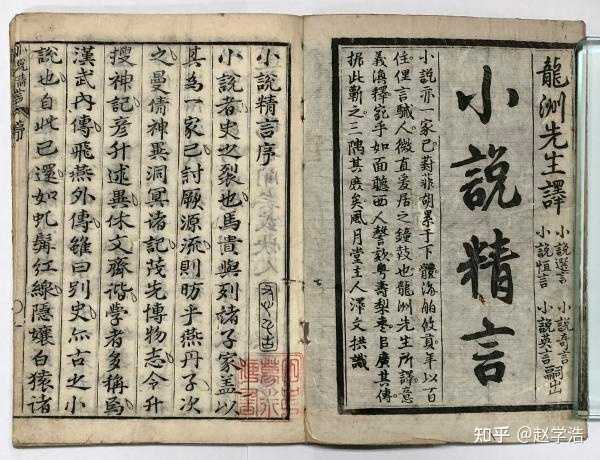 龍洲先生譯
小說選言 小說奇言
小說恒言 小說英言嗣出
小說精言
小說亦一家已對菲胡累于下體海舶攸貢年以百
任俚言 人微直 居之鐘鼓也龍洲先生所譯意
義渙釋宛乎如面聽西人謦欬粤壽梨棗 廣其傳
據此 之三隅其庶矣風月堂主人澤文拱識
小說精言序
小說者史之裂也馬貴與列諸子家蓋以
其為一家已討厥源流則昉乎燕丹子次
之曼倩神異洞冥諸記茂先博物志令升
搜神記彥升述異休文齊諧學者多稱焉
漢武內傳飛燕外傳雖曰別史亦古之小
說也自此已還如虬髯紅線隱孃白猿諸
小說精言 序
知乎 @赵学浩